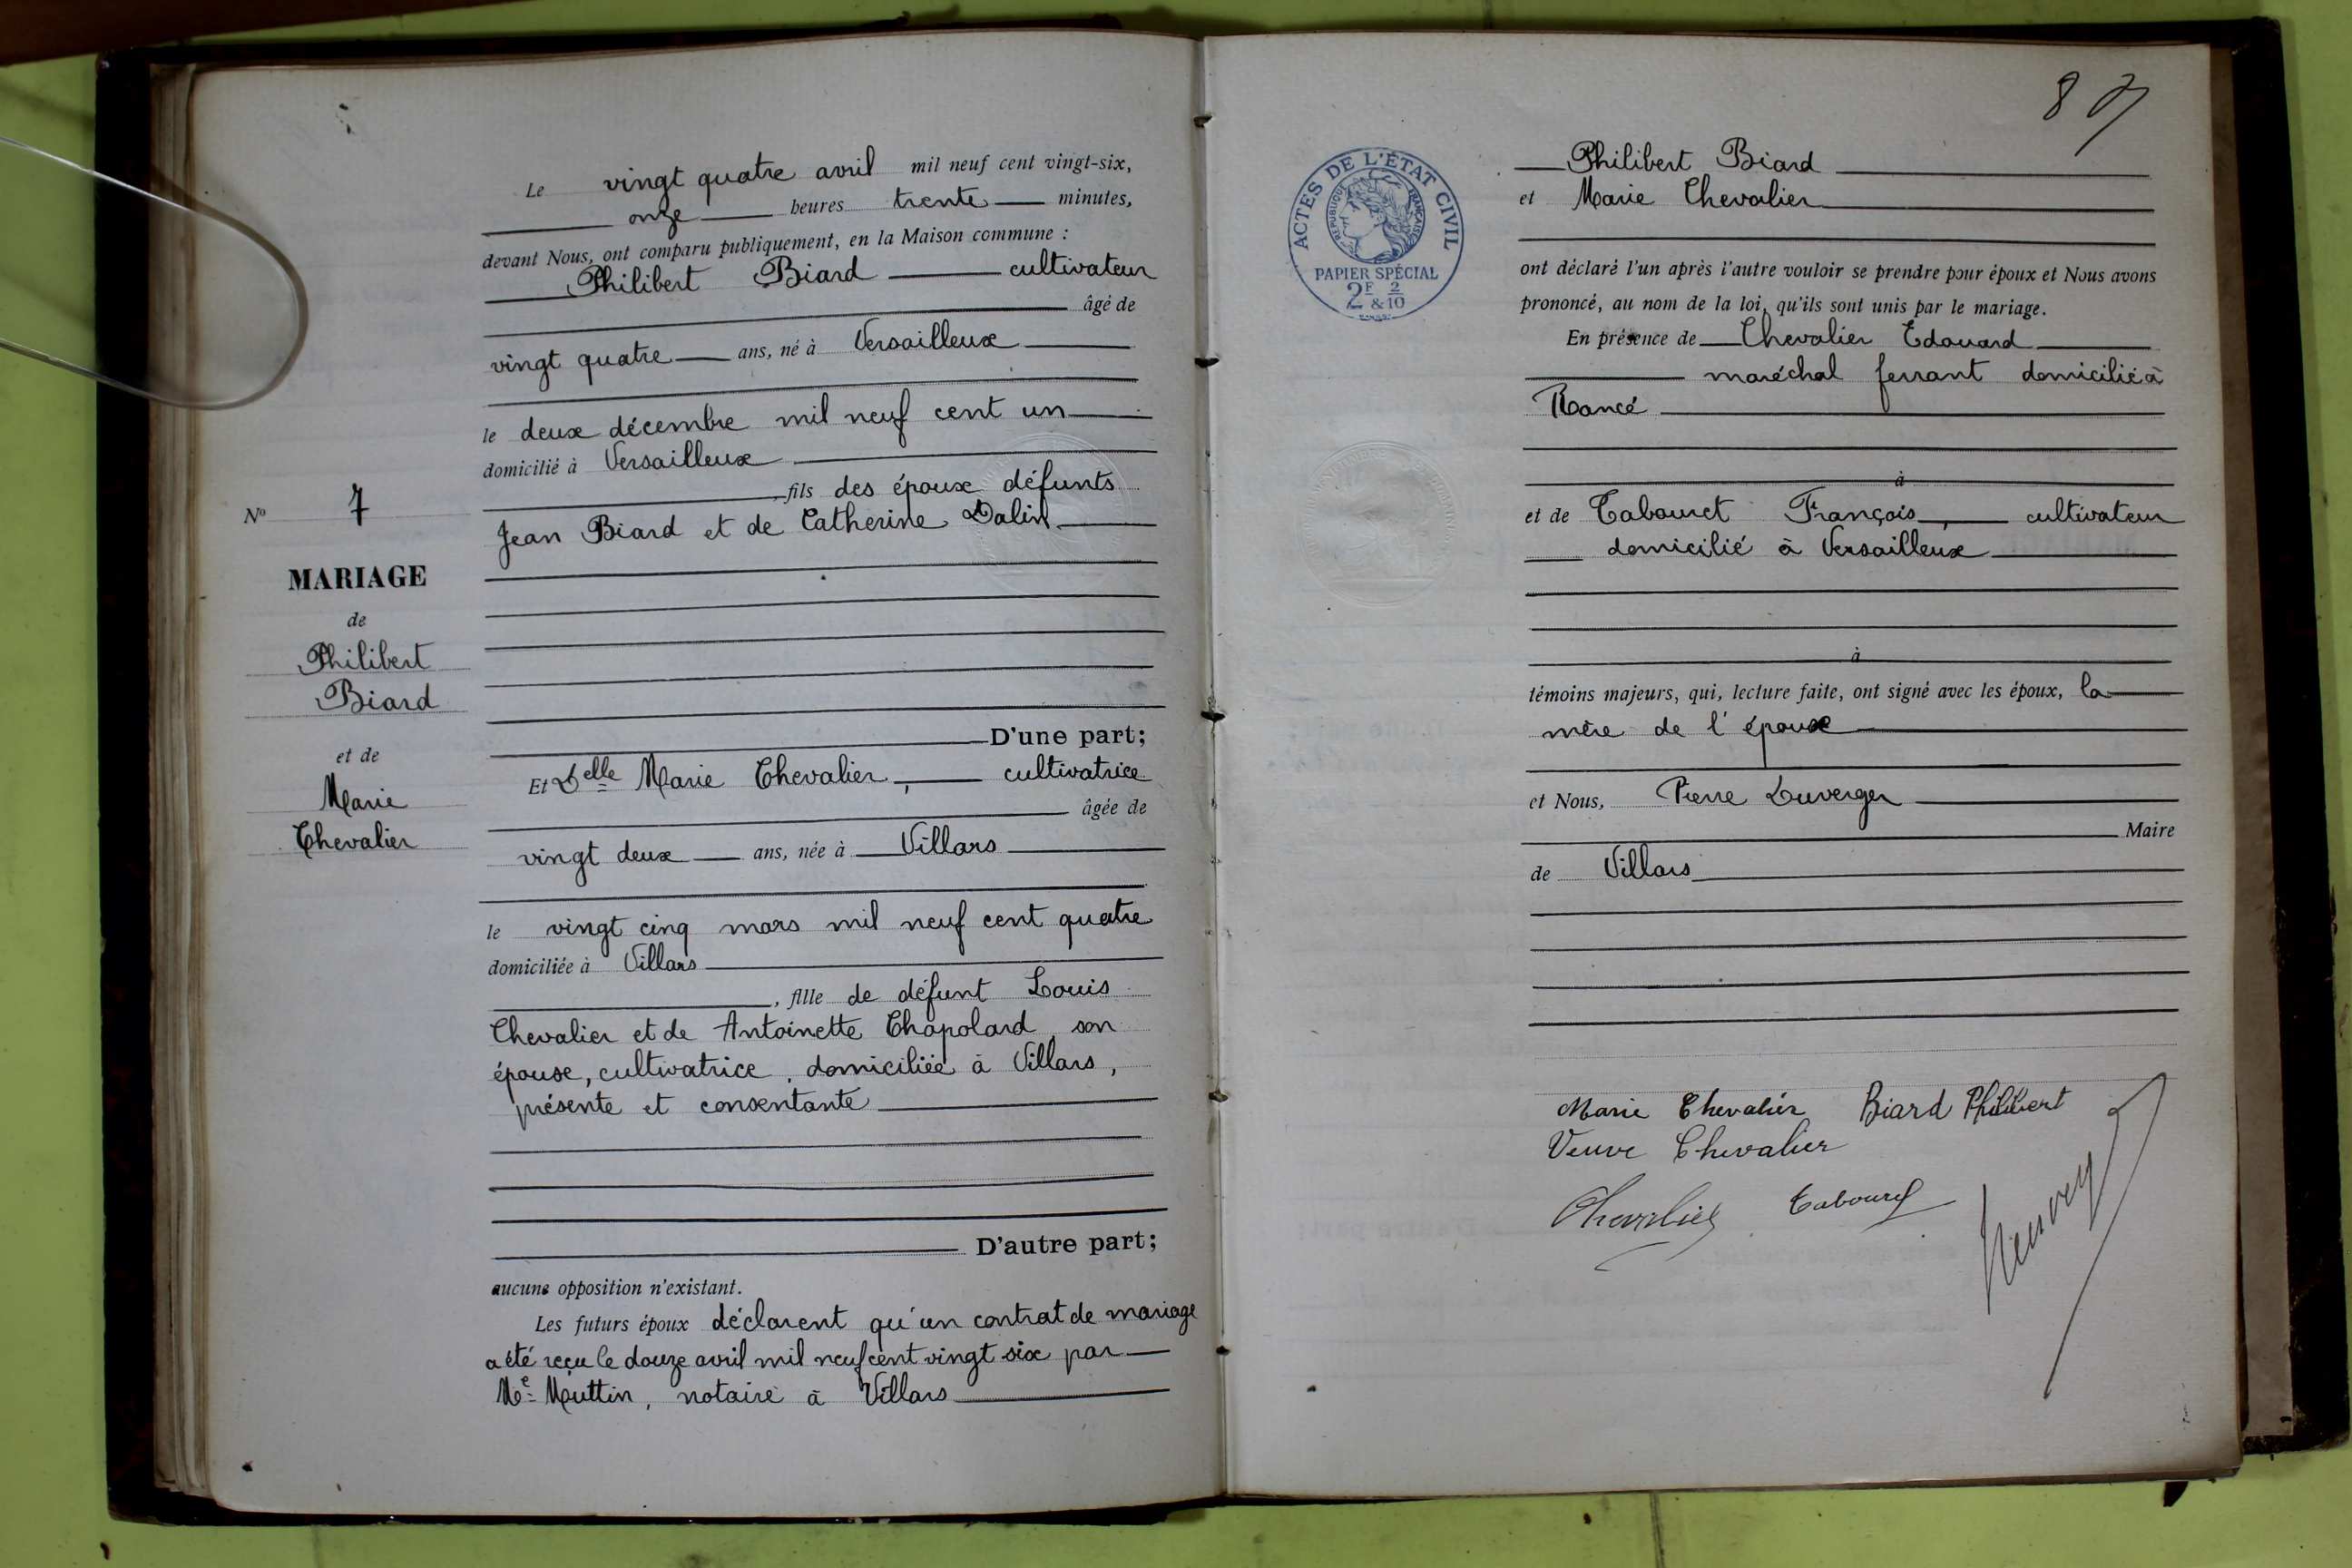 Le vingt quatre avril mil neuf cent vingt-six,
onze heures trente minutes,
devant Nous, ont comparu publiquement, en la Maison commune :
Philibert Biard cultivateur
âgé de
vingt quatre ans, né à Versailleux
le deux décembre mil neuf cent un
domicilié à Versailleux
, fils des époux défunts
Jean Biard et de Catherine Dalin
D'une part;
Et Delle Marie Chevalier, cultivatrice
âgée de
vingt deux ans, née à Villars
le vingt cinq mars mil neuf cent quatre
domiciliée à Villars
, fille de défunt Louis
Chevalier et de Antoinette Chapolard son
épouse, cultivatrice, domiciliée à Villars,
présente et consentante
D'autre part;
aucune opposition n'existant.
Les futurs époux déclarent qu'un contrat de mariage
a été reçu le douze avril mil neuf cent vingt six par
Me Muttin, notaire à Villars
No 7
MARIAGE
de
Philibert
Biard
et de
Marie
Chevalier
8
ACTES DE L'ÉTAT CIVIL
RÉPUBLIQUE FRANÇAISE
PAPIER SPÉCIAL
2F & 2/10
Philibert Biard
et Marie Chevalier
ont déclaré l'un après l'autre vouloir se prendre pour époux et Nous avons
prononcé, au nom de la loi, qu'ils sont unis par le mariage.
En présence de Chevalier Edouard
maréchal ferrant domicilié à
Rancé
à
et de Tabouret François, cultivateur
domicilié à Versailleux
à
témoins majeurs, qui, lecture faite, ont signé avec les époux, la
mère de l'épouse
et Nous, Pierre Duverger
Maire
de Villars
Marie Chevalier Biard Philibert
Veuve Chevalier
Chevalier Tabouret